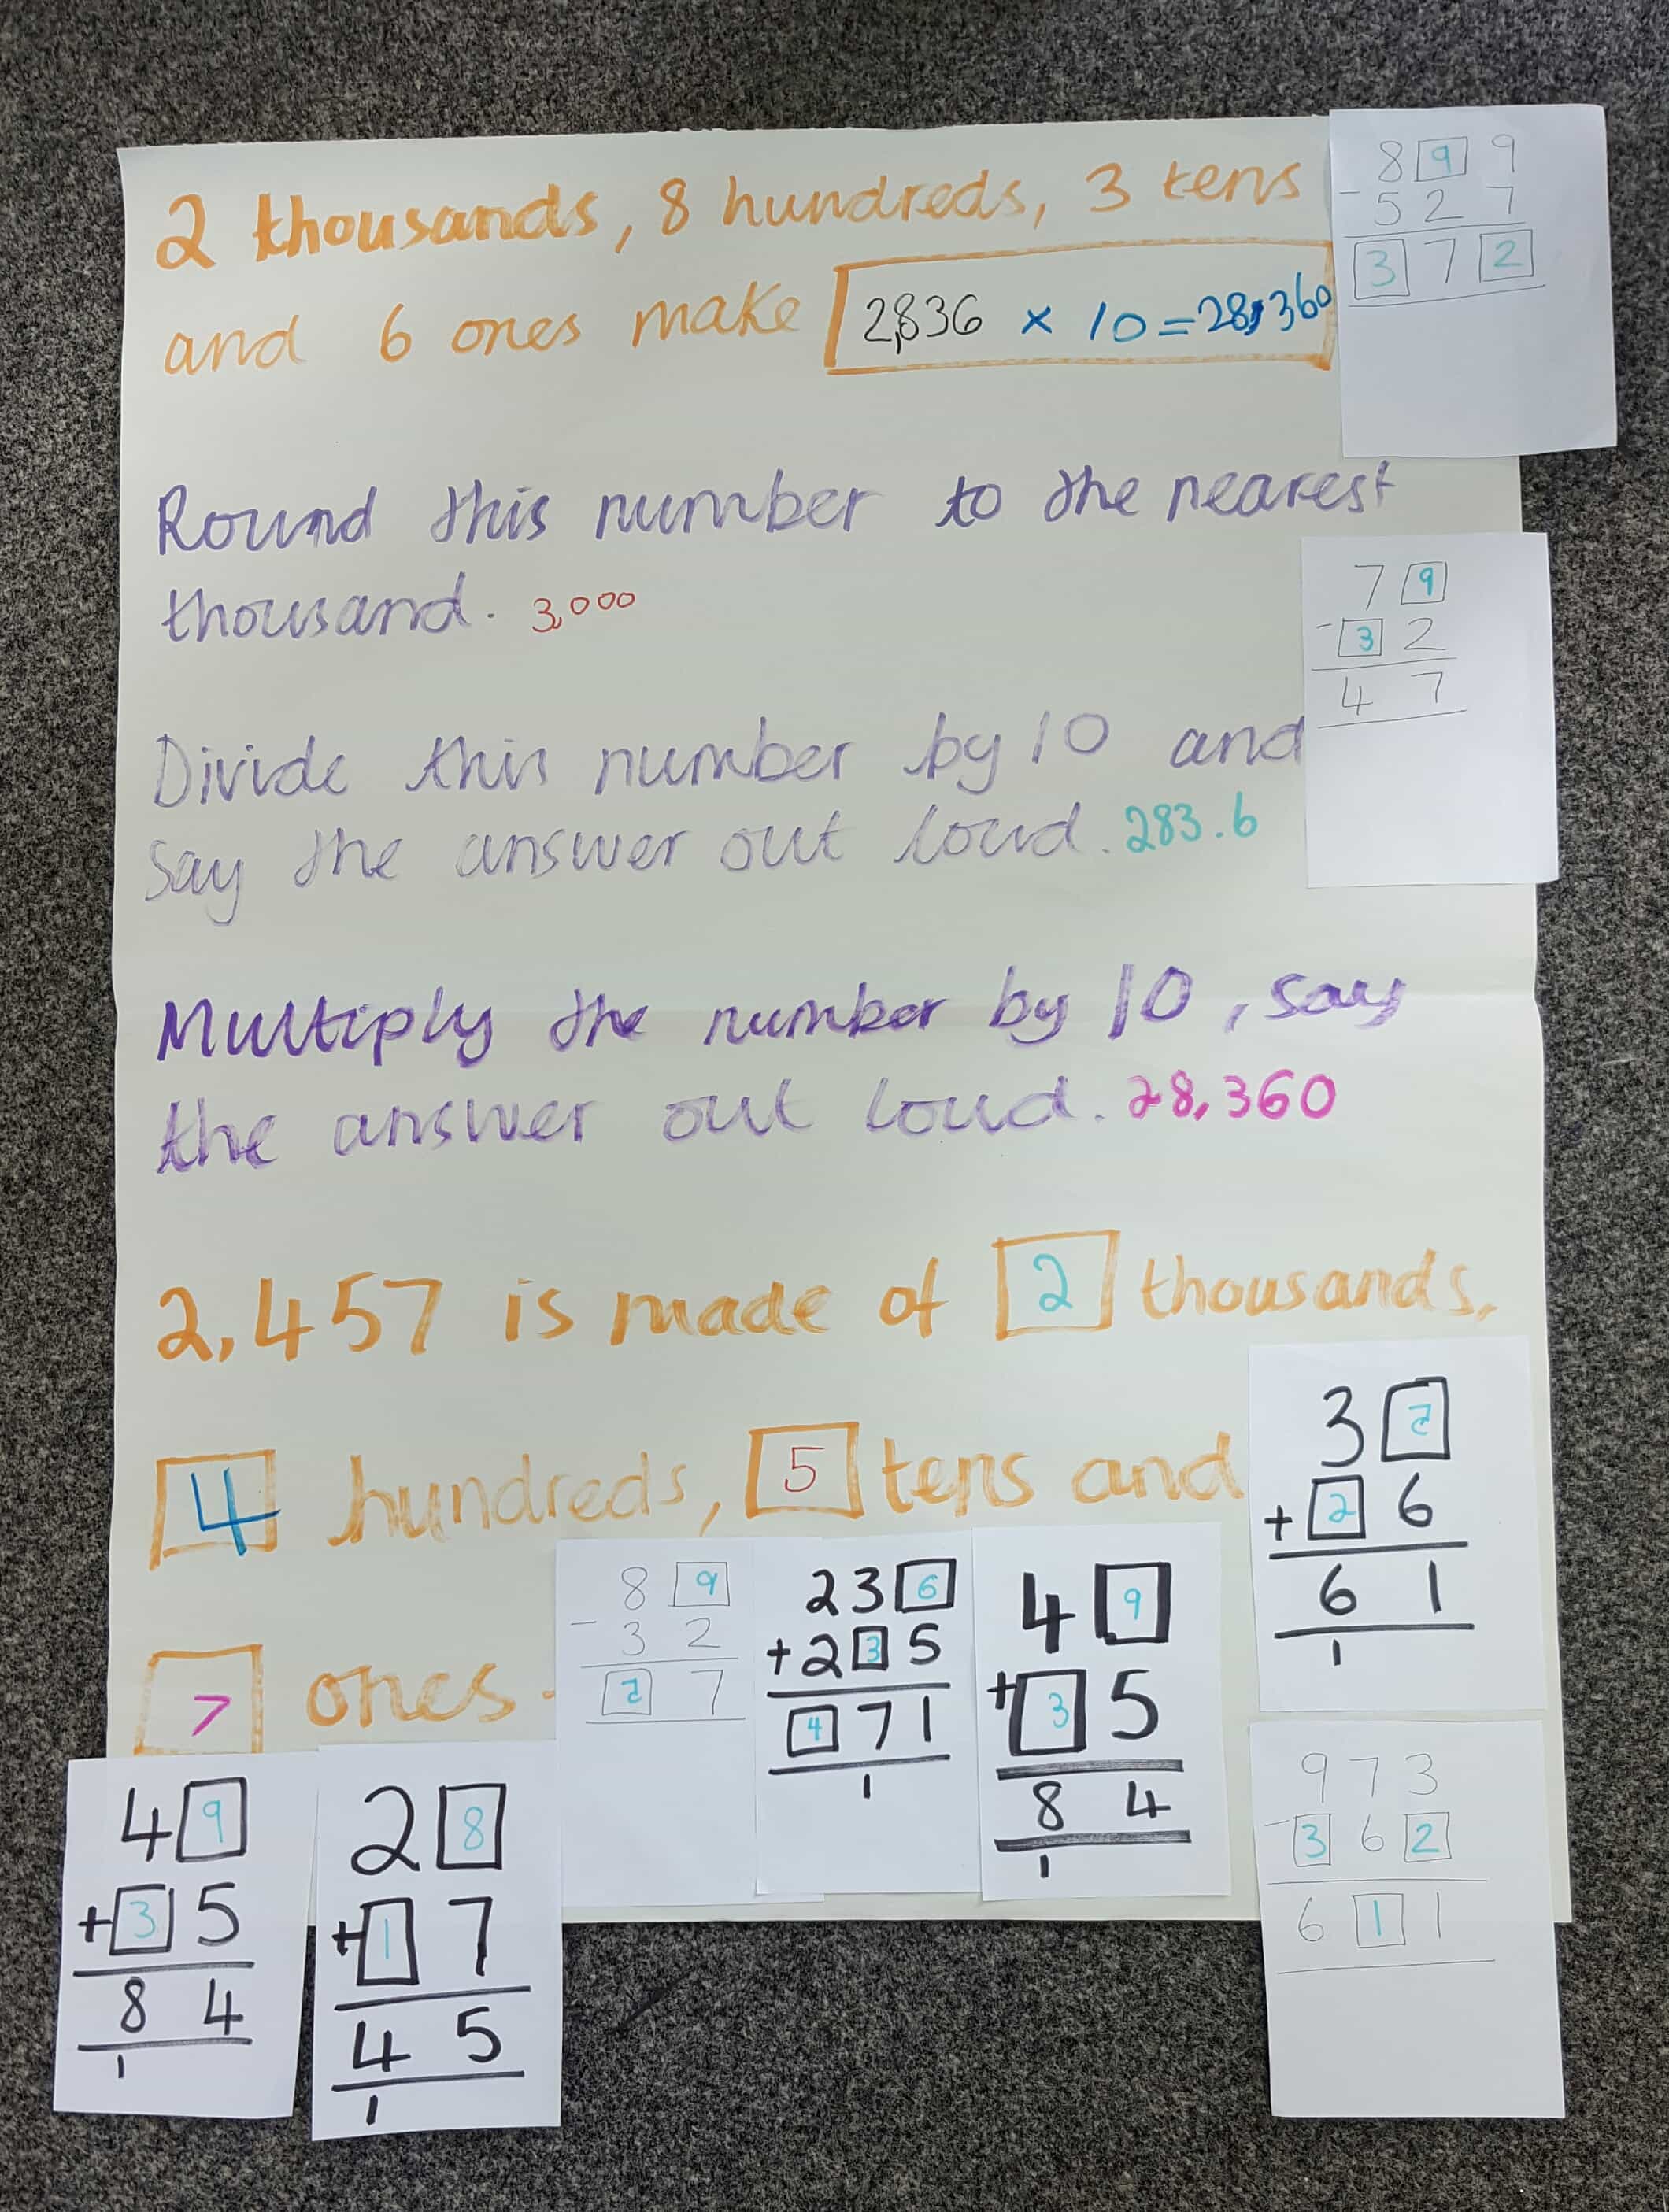 2 thousands, 8 hundreds, 3 tens
and 6 ones make 2,836 × 10 = 28,360
Round this number to the nearest
thousand. 3,000
Divide this number by 10 and
say the answer out loud. 283.6
Multiply the number by 10, say
the answer out loud. 28,360
2,457 is made of 2 thousands,
4 hundreds, 5 tens and
7 ones.
8 9 9
- 5 2 7
3 7 2
7 9
- 3 2
4 7
3 5
+ 2 6
6 1
1
8 9
- 3 2
5 7
2 3 6
+ 2 3 5
4 7 1
1
4 9
+ 3 5
8 4
1
4 9
+ 3 5
8 4
1
2 8
+ 1 7
4 5
1
9 7 3
- 3 6 2
6 1 1